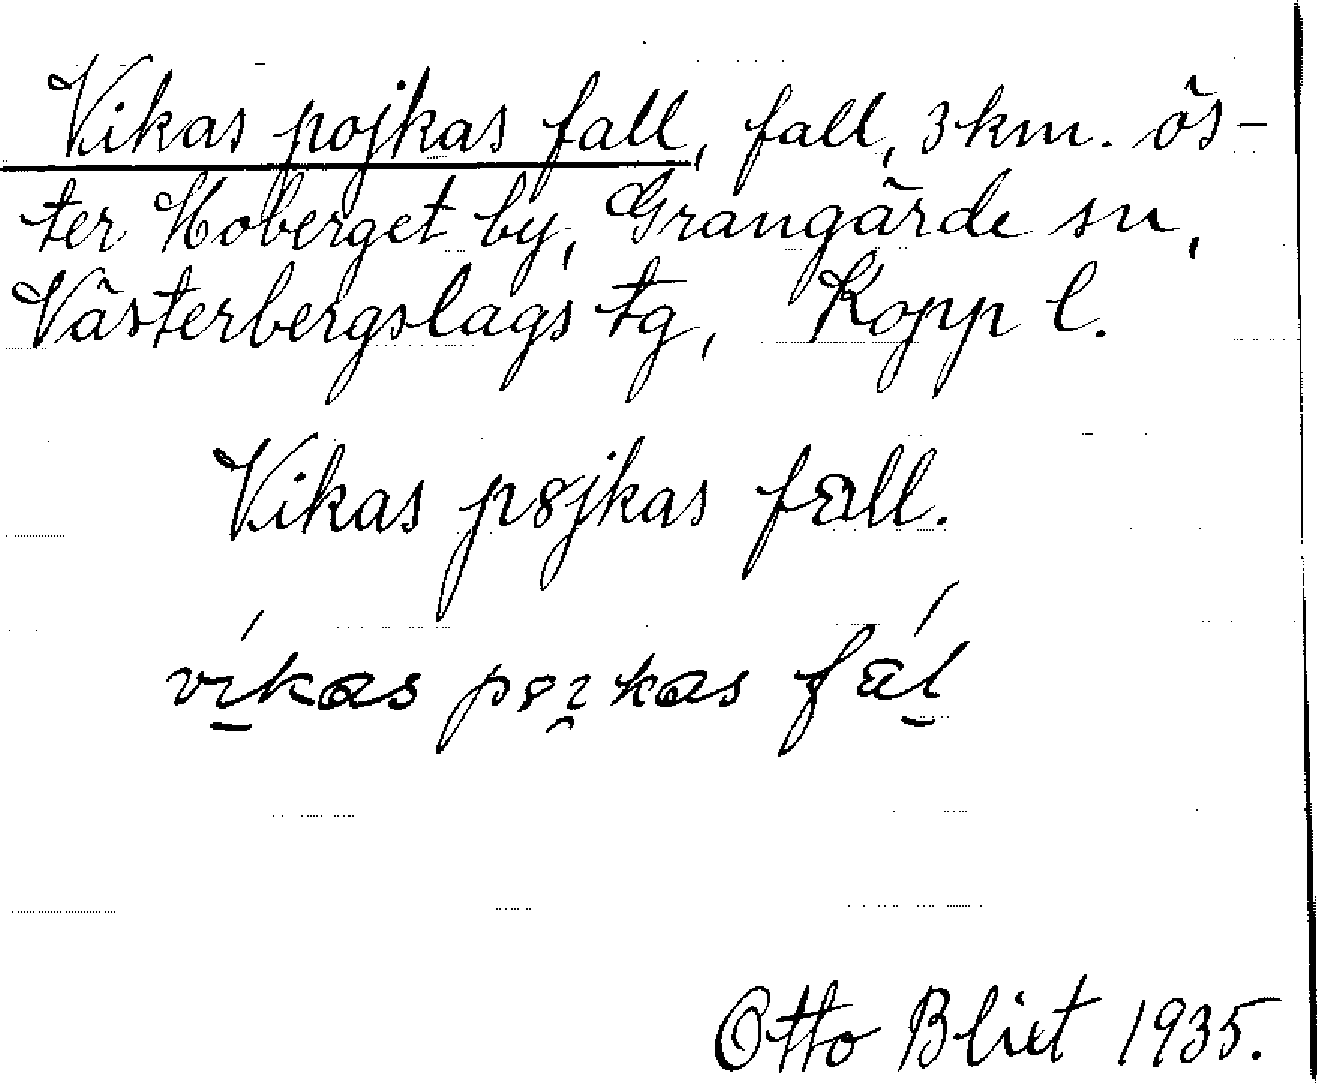 Vikas pojkas fall, fall, 3 km. ös-
ter Hoberget by, Grangärde sn,
Västerbergslags tg, Kopp l.
Vikas pojkas fall.
Otto Blixt 1935.